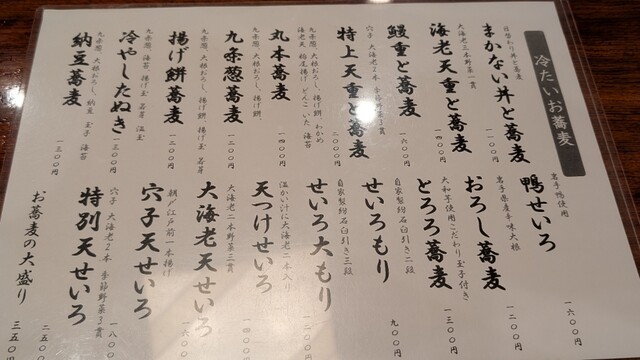 冷たいお蕎麦
日替わり丼と蕎麦
まかない丼と蕎麦
一一〇〇円
大海老二本野菜一貫
海老天重と蕎麦
一四〇〇円
鰻重と蕎麦
一六〇〇円
穴子 大海老2本 季節野菜3貫
特上天重と蕎麦
二〇〇〇円
九条葱、大根おろし、揚げ餅、わかめ
海老天 稲造揚げ どんこ いた 海苔
丸本蕎麦
一四〇〇円
九条葱、大根おろし、揚げ餅、
九条葱蕎麦
一二〇〇円
九条葱、大根おろし、揚げ餅、揚げ玉 若芽
揚げ餅蕎麦
一二〇〇円
九条葱 海苔 揚げ玉 若芽 温玉
冷やしたぬき
一三〇〇円
九条葱、大根おろし、納豆 玉子 海苔
納豆蕎麦
一三〇〇円
岩手鴨使用
鴨せいろ
一六〇〇円
岩手県産辛味大根
おろし蕎麦
一二〇〇円
大和芋使用こだわり玉子付き
とろろ蕎麦
一三〇〇円
自家製粉石臼引き二段
せいろもり
九〇〇円
自家製粉石臼引き三段
せいろ大もり
一二〇〇円
温かい汁に大海老二本入り
天つけせいろ
一四〇〇円
大海老二本野菜三貫
大海老天せいろ
一六〇〇円
朝〆江戸前一本揚げ
穴子天せいろ
穴子 大海老2本 季節野菜3貫
特別天せいろ
一八〇〇
お蕎麦の大盛り
二五〇円
三五〇円